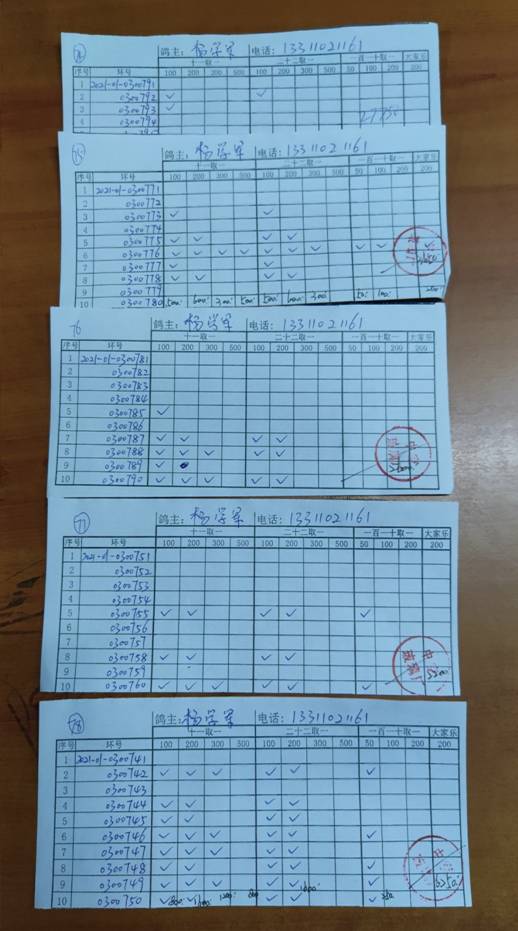 鸽主: 杨学军 电话: 13311021161
序号 环号 十一取一 二十二取一 一百一十取一 大家乐
100 200 300 500 100 200 300 500 50 100 200 200
1 2021-01-0300791
2 0300792 ✓ ✓
3 0300793 ✓
4 0300794
75 鸽主: 杨学军 电话: 13311021161
序号 环号 十一取一 二十二取一 一百一十取一 大家乐
100 200 300 500 100 200 300 500 50 100 200 200
1 2021-01-0300771
2 0300772
3 0300773 ✓ ✓
4 0300774
5 0300775 ✓ ✓ ✓ ✓
6 0300776 ✓ ✓ ✓ ✓ ✓ ✓ ✓ ✓ ✓ ✓
7 0300777 ✓ ✓
8 0300778 ✓ ✓ ✓ ✓
9 0300779
10 0300780 500 600 300 500 500 600 300 50 100 200
76 鸽主: 杨学军 电话: 13311021161
序号 环号 十一取一 二十二取一 一百一十取一 大家乐
100 200 300 500 100 200 300 500 50 100 200 200
1 2021-01-0300781
2 0300782
3 0300783
4 0300784
5 0300785 ✓
6 0300786
7 0300787 ✓ ✓ ✓ ✓
8 0300788 ✓ ✓ ✓ ✓ ✓
9 0300789 ✓
10 0300790 ✓ ✓ ✓ ✓ ✓
77 鸽主: 杨学军 电话: 13311021161
序号 环号 十一取一 二十二取一 一百一十取一 大家乐
100 200 300 500 100 200 300 500 50 100 200 200
1 2021-01-0300751
2 0300752
3 0300753
4 0300754
5 0300755 ✓ ✓ ✓ ✓ ✓
6 0300756
7 0300757
8 0300758 ✓ ✓ ✓ ✓
9 0300759
10 0300760 ✓ ✓ ✓ ✓ ✓ ✓
78 鸽主: 杨学军 电话: 13311021161
序号 环号 十一取一 二十二取一 一百一十取一 大家乐
100 200 300 500 100 200 300 500 50 100 200 200
1 2021-01-0300741
2 0300742 ✓ ✓ ✓ ✓ ✓ ✓
3 0300743
4 0300744 ✓ ✓ ✓ ✓
5 0300745 ✓ ✓ ✓ ✓
6 0300746 ✓ ✓ ✓ ✓ ✓ ✓
7 0300747 ✓ ✓ ✓ ✓ ✓
8 0300748 ✓ ✓ ✓ ✓ ✓
9 0300749 ✓ ✓ ✓ ✓ ✓ ✓
6250
10 0300750 ✓ ✓ ✓ ✓ ✓